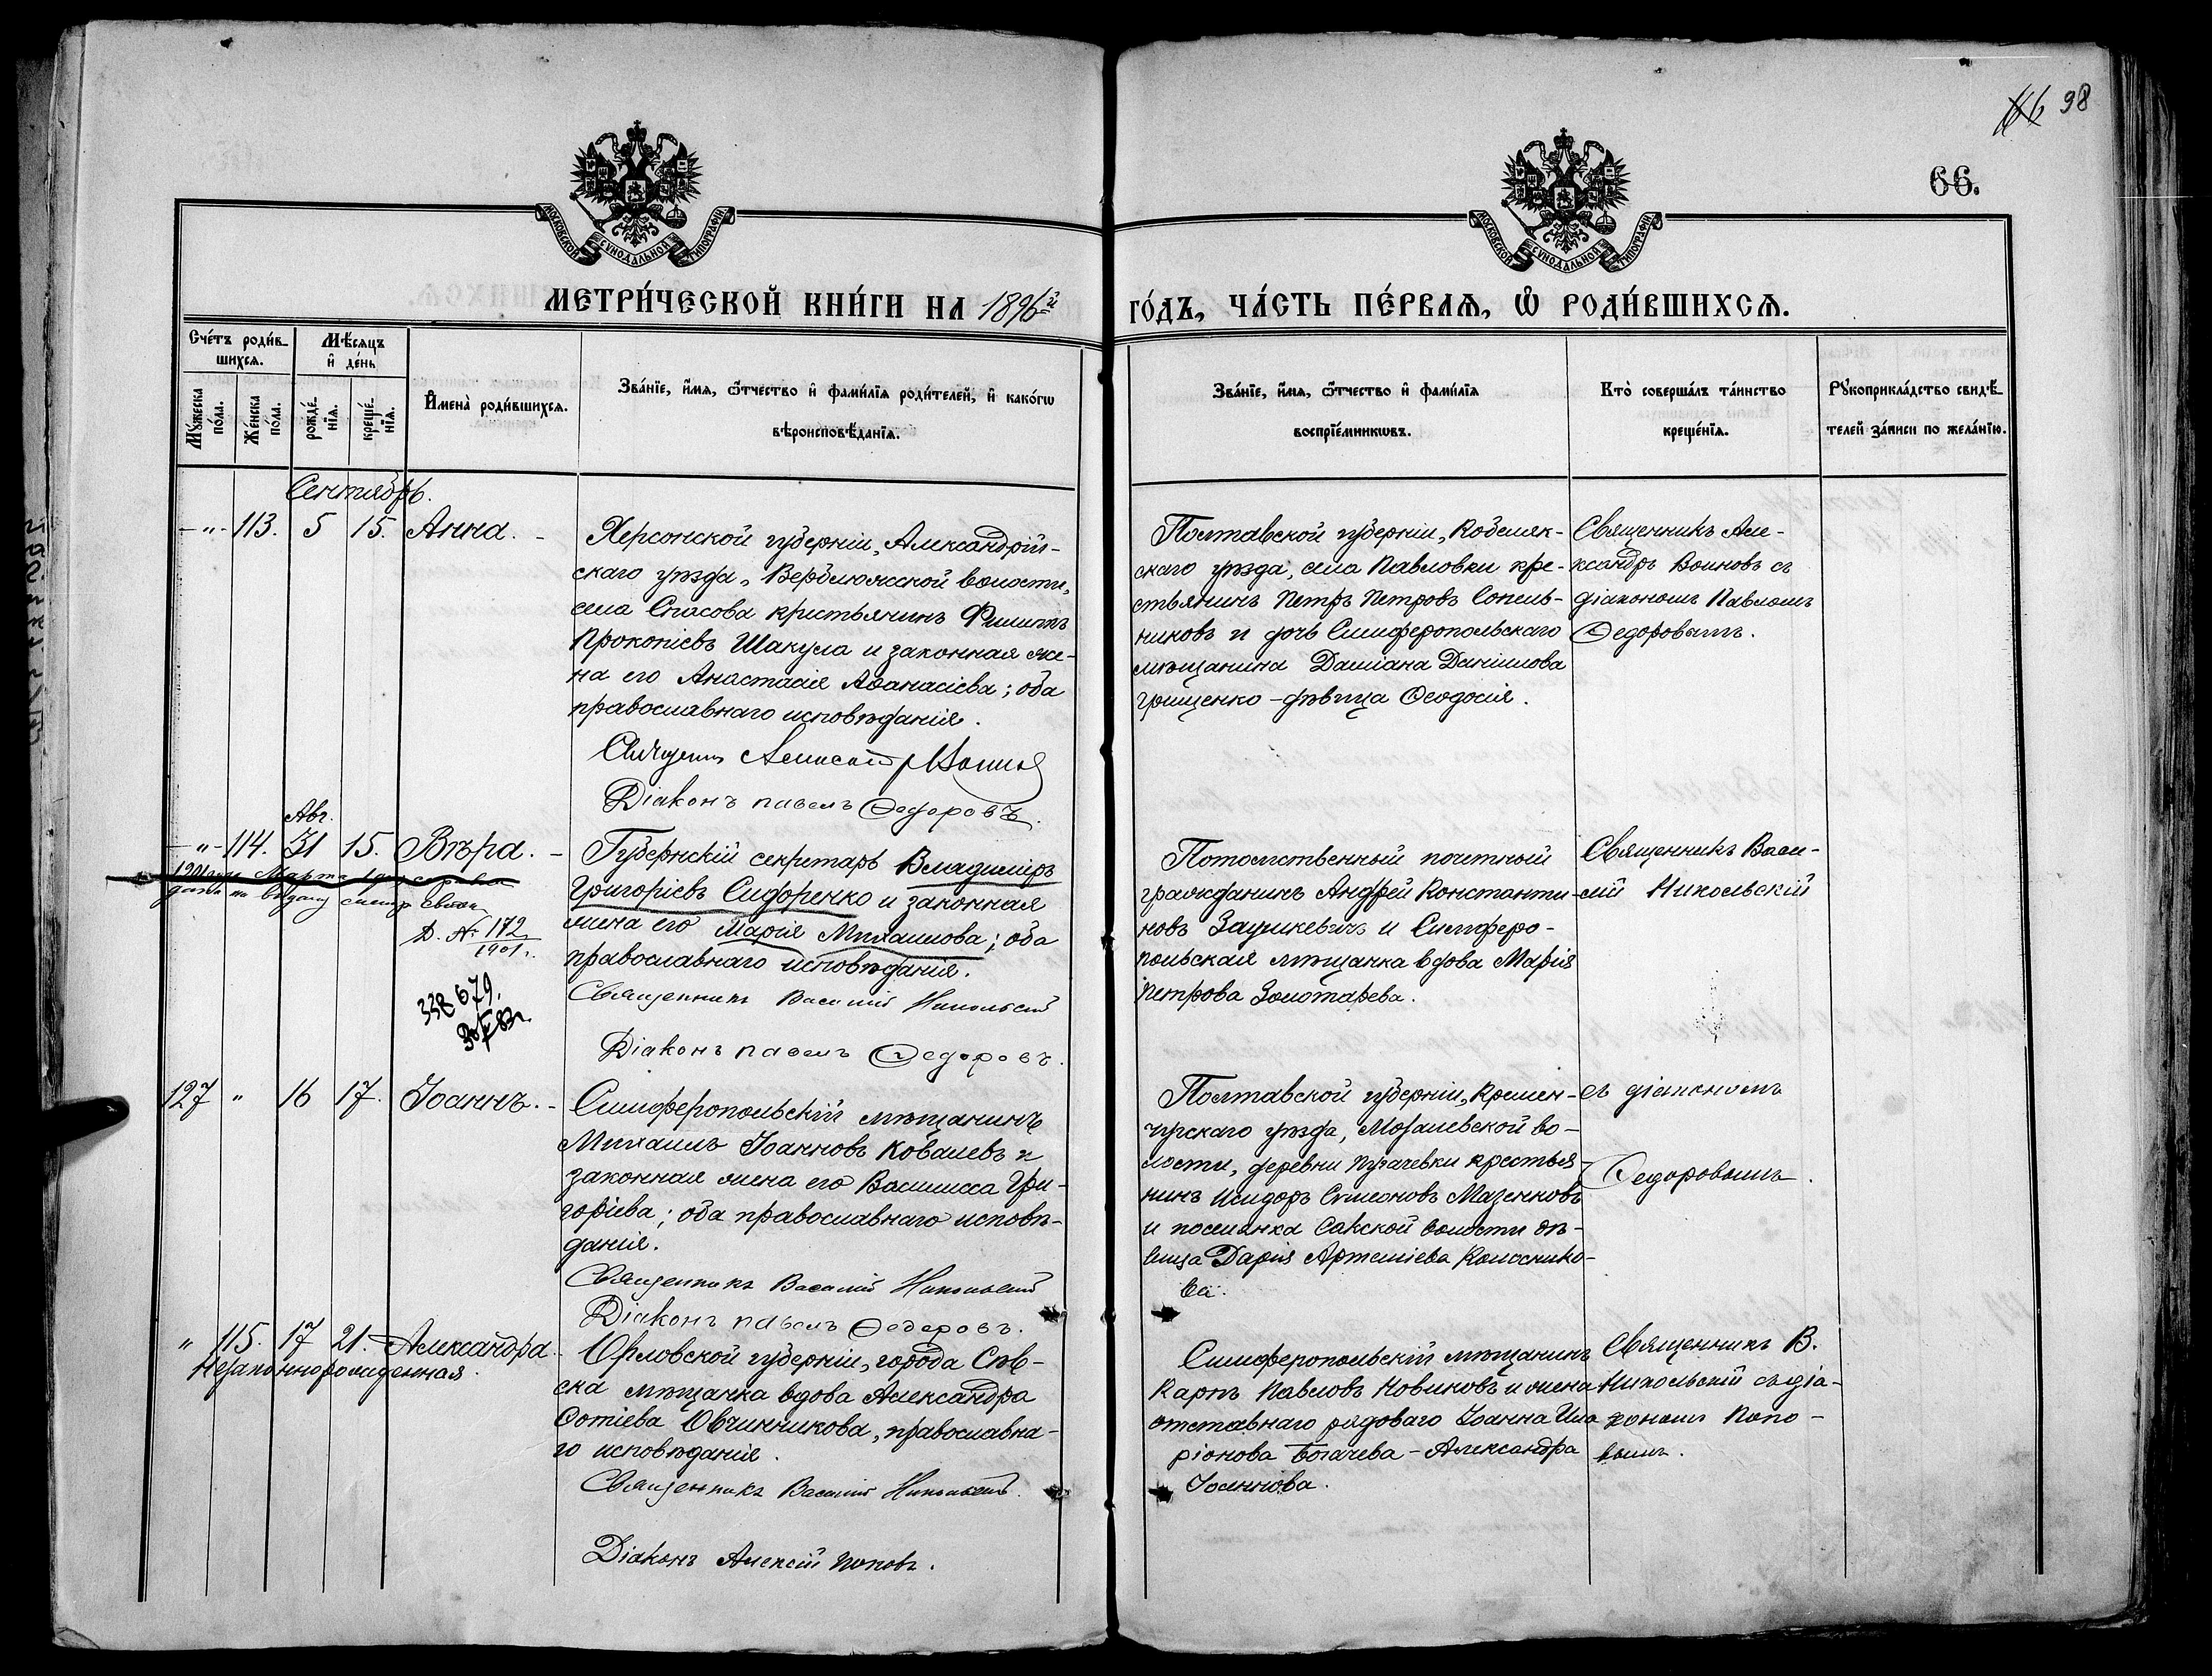 66 98
66.
МОСКОВСКОЙ СУНОДАЛЬНОЙ ТИПОГРАФІИ
МОСКОВСКОЙ СУНОДАЛЬНОЙ ТИПОГРАФІИ
МЕТРИ́ЧЕСКОЙ КНИ́ГИ НА 1896й
ГО́ДЪ, ЧА́СТЬ ПЕ́РВАѦ, Ѡ҆ РОДИ́ВШИХСѦ.
Сче́тъ роди́в-
шихсѧ.
Мѣ́сѧцъ
и҆ де́нь
Му́жеска
по́ла.
Же́нска
по́ла.
рожде́-
нїѧ.
креще́-
нїѧ.
И҆мена̀ роди́вшихсѧ.
Зва́нїе, и҆́мѧ, ѻ҆́тчество и҆ фами́лїѧ роди́телей, и҆ како́гѡ
вѣроисповѣ́данїѧ.
Зва́нїе, и҆́мѧ, ѻ҆́тчество и҆ фами́лїѧ
воспрїе́мникѡвъ.
Кто̀ соверша́лъ та́инство
креще́нїѧ.
Рꙋкоприкла́дство свидѣ́-
телей за́писи по жела́нїю.
Сентябрь.
-"- 113. 5 15. Анна. -
Херсонской губерніи, Александрій-
скаго уѣзда, Верблюжской волости,
села Спасова крестьянинъ Филиппъ
Прокопіевъ Шакула и законная же-
на его Анастасія Аѳанасіева; оба
православнаго исповѣданія.
Священникъ Александръ Воиновъ
Діаконъ павелъ Ѳедоровъ.
Полтавской губерніи, Кобеляк-
скаго уѣзда, села Павловки кре-
стьянинъ Петръ Петровъ Сопель-
никовъ и дочь Симферопольскаго
мѣщанина Даміана Даніилова
Грищенко - дѣвица Ѳеодосія.
Священникъ Але-
ксандръ Воиновъ съ
діакономъ Павломъ
Ѳедоровымъ.
Авг.
-"- 114. 31 15. Вѣра. -
1901 Марта
на выдачу метр. свид.
Д. № 172
1901 г.
338679.
Губернскій секретарь Владиміръ
Григоріевъ Сидоренко и законная
жена его Марія Михаилова; оба
православнаго исповѣданія.
Священникъ Василій Никольскій
Діаконъ павелъ Ѳедоровъ.
Потомственный почетный
гражданинъ Андрей Константи-
новъ Заушкевичъ и Симферо-
польская мѣщанка вдова Марія
Петрова Золотарева.
Священникъ Васи-
лій Никольскій
127 " 16 17. Іоаннъ. -
Симферопольскій мѣщанинъ
Михаилъ Іоанновъ Ковалевъ и
законная жена его Василисса Гри-
горіева; оба православнаго исповѣ-
данія.
Священникъ Василій Никольскій
Діаконъ павелъ Ѳедоровъ.
Полтавской губерніи, Кремен-
чугскаго уѣзда, волости,
деревни Пугачевки крестья-
нинъ Исидоръ Симеоновъ Мазенковъ
и поселянка Сакской волости дѣ-
вица Дарія Артеміева Колеснико-
ва.
съ діакономъ
Ѳедоровымъ.
" 115. 17 21. Александра.
Незаконнорожденная.
Орловской губерніи, города Сѣв-
ска мѣщанка вдова Александра
Фотіева Овчинникова, православна-
го исповѣданія.
Священникъ Василій Никольскій.
Діаконъ Алексій Поповъ.
Симферопольскій мѣщанинъ
Карпъ Павловъ Новиковъ и жена
отставнаго рядоваго Іоанна Ила-
ріонова Богачева - Александра
Іоаннова.
Священникъ В.
Никольскій съ діа-
кономъ Попо-
вымъ.